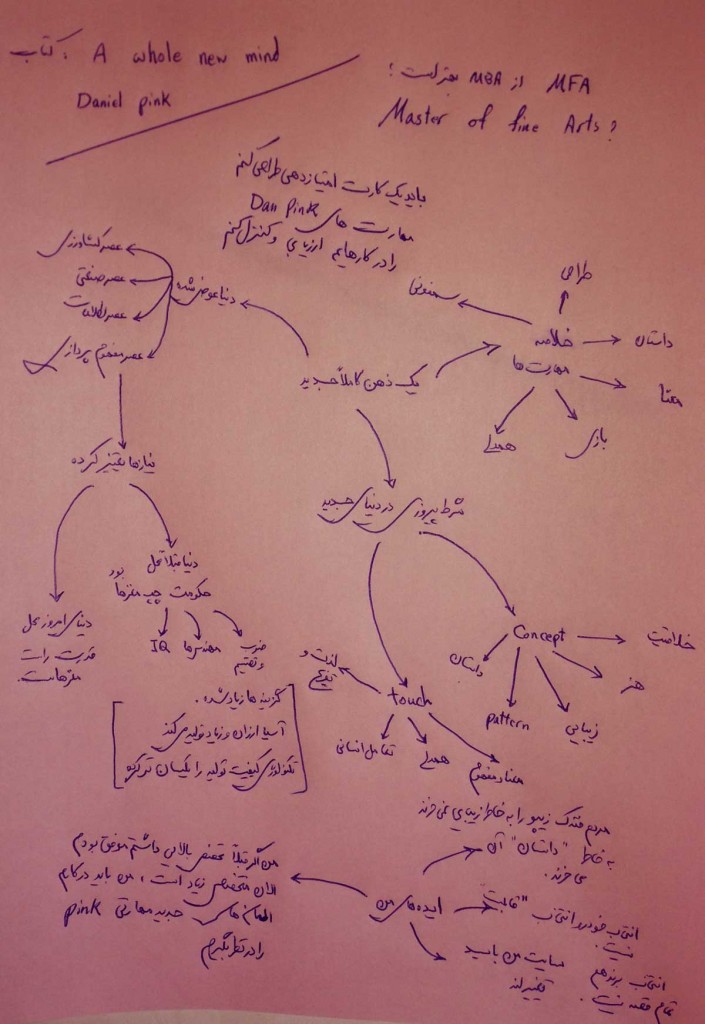 کتاب: A whole new mind
Daniel pink
MFA از MBA بهتر است؟
Master of fine Arts?
باید یک کارت امتیازدهی طراحی کنم
مهارت های Dan Pink
را در کارهایم ارزیابی و کنترل کنم
یک ذهن کاملاً جدید
دنیا عوض شده
عصر کشاورزی
عصر صنعتی
عصر اطلاعات
عصر مفهوم پردازی
نیازها تغییر کرده
دنیا قبلاً محل
حکومت چپ مغزها بود
ضرب و تقسیم
مهندس ها
IQ
دنیای امروز محل
قدرت راست
مغزهاست.
گزینه ها زیاد شده.
آسیا ارزان و زیاد تولید می کند
تکنولوژی کیفیت تولید را یکسان تر کرده
خلاصه
مهارت ها
طراحی
داستان
معنا
بازی
همدلی
سمفونی
شرط پیروزی در دنیای جدید
Concept
خلاقیت
هنر
زیبایی
pattern
داستان
touch
لذت و
تفریح
تعامل انسانی
همدلی
معنا و مفهوم
ایده های من
مردم فندک زیپو را به خاطر زیبایی نمی خرند
به خاطر "داستان" آن
می خرند.
انتخاب خودرو انتخاب "قالب"
نیست.
انتخاب برند هم
تمام قصه نیست.
سایت من باید
تغییر کند
من اگر قبلاً تخصص بالایی داشتم موفق بودم
الان متخصص زیاد است، من باید در کارم
المان های جدید مهارتی pink
را در نظر بگیرم